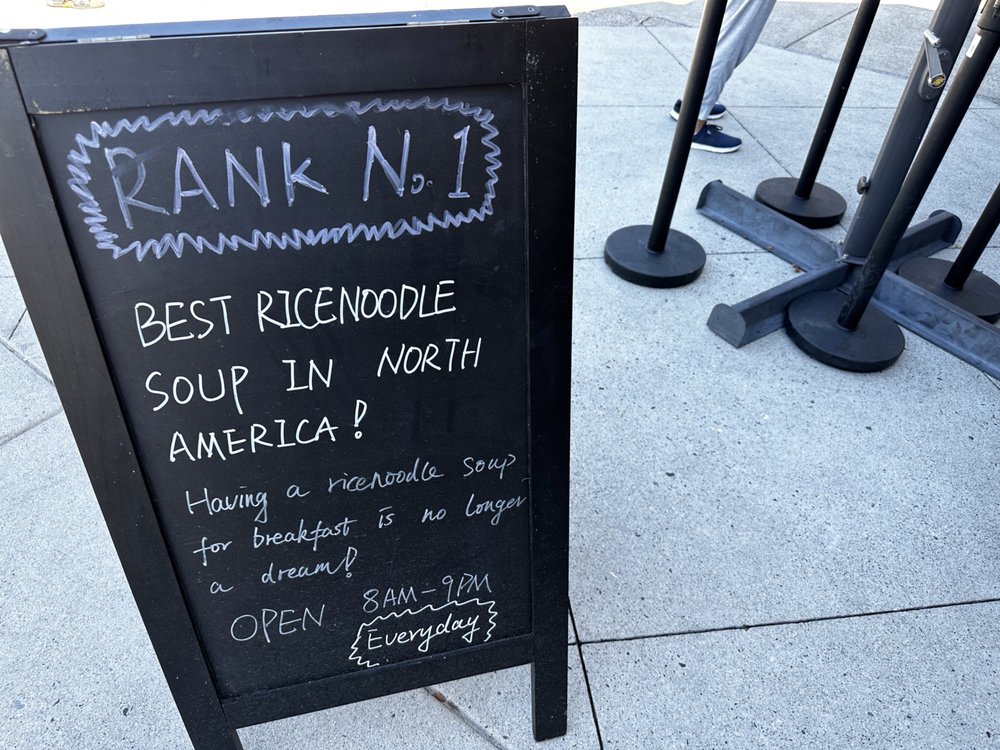 RANK No. 1
BEST RICENOODLE
SOUP IN NORTH
AMERICA!
Having a ricenoodle soup
for breakfast is no longer
a dream!
OPEN 8AM-9PM
Everyday